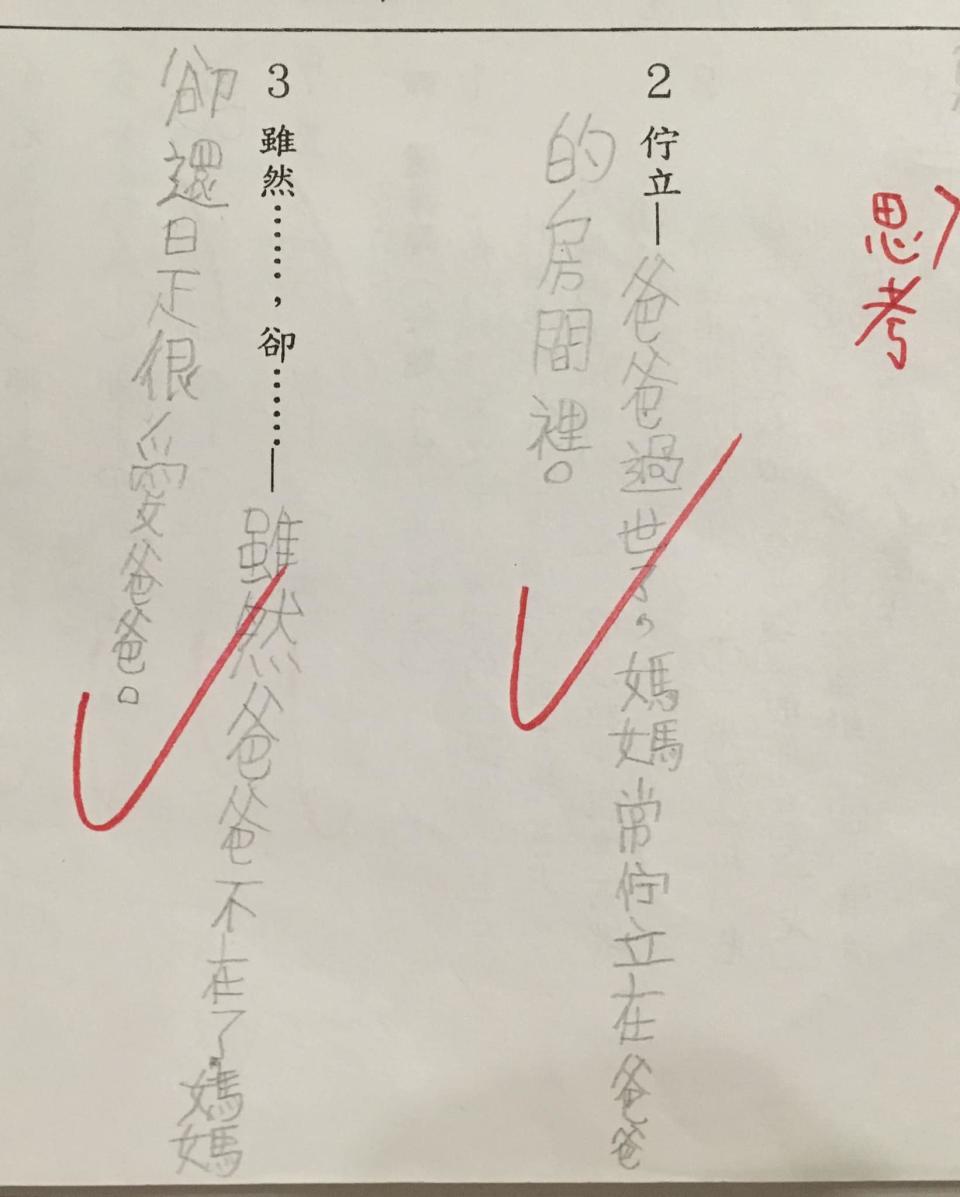 思考
2 佇立—爸爸過世了，媽媽常佇立在爸爸
的房間裡。
3 雖然……，卻……—雖然爸爸不在了，媽媽
卻還是很愛爸爸。